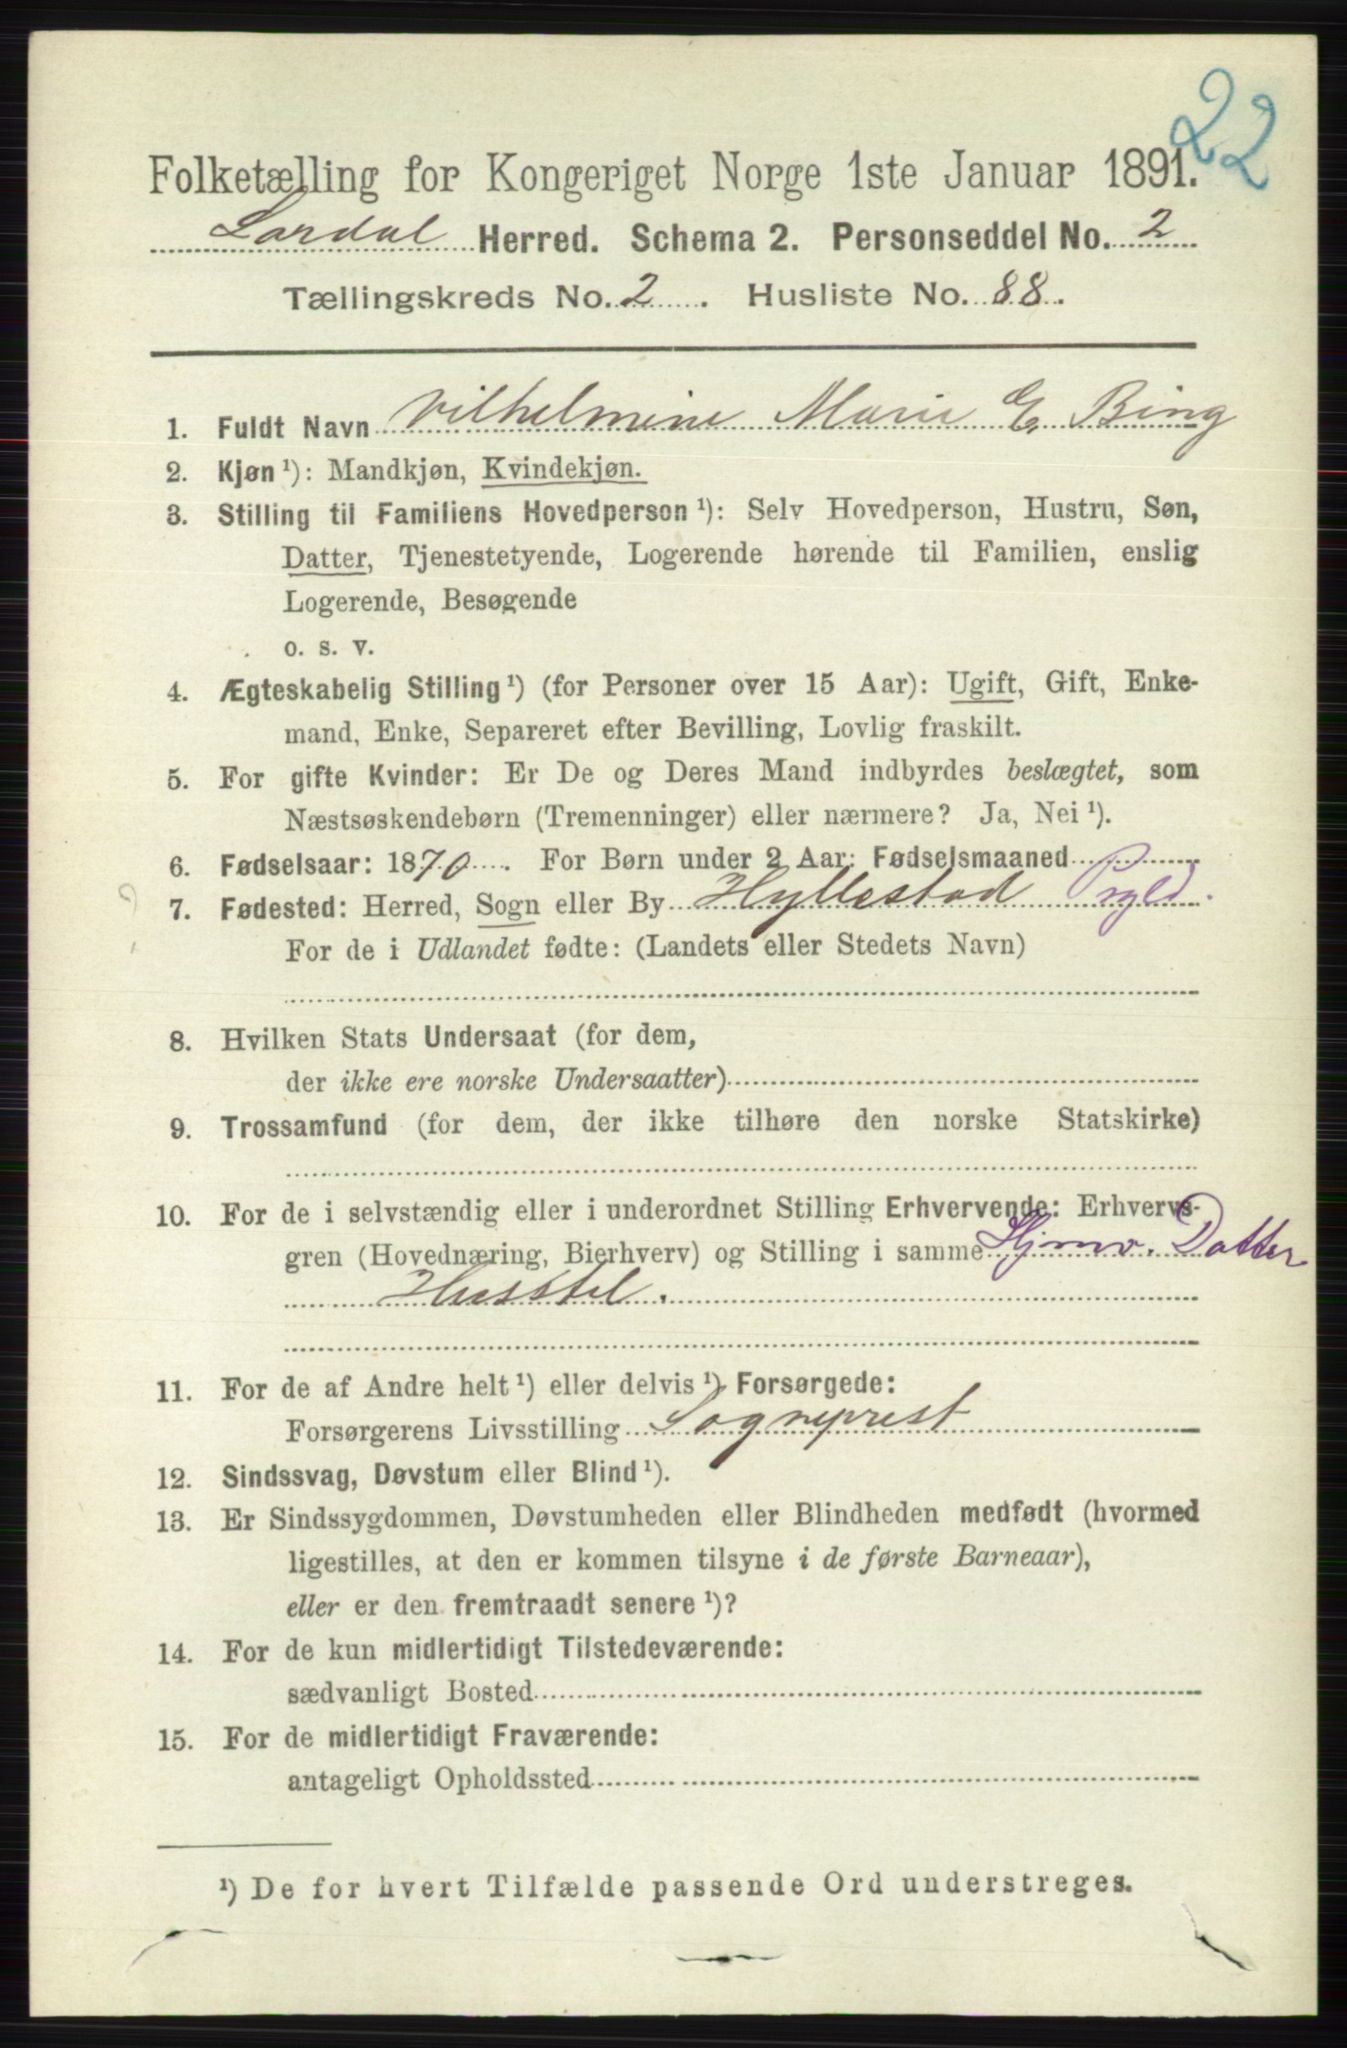 22
Folketælling for Kongeriget Norge 1ste Januar 1891.
Lardal Herred. Schema 2. Personseddel No. 2
Tællingskreds No. 2. Husliste No. 88.
1. Fuldt Navn Vilhelmine Marie E. Bing
2. Kjøn ¹): Mandkjøn, Kvindekjøn.
3. Stilling til Familiens Hovedperson ¹): Selv Hovedperson, Hustru, Søn,
Datter, Tjenestetyende, Logerende hørende til Familien, enslig
Logerende, Besøgende
o. s. v.
4. Ægteskabelig Stilling ¹) (for Personer over 15 Aar): Ugift, Gift, Enke-
mand, Enke, Separeret efter Bevilling, Lovlig fraskilt.
5. For gifte Kvinder: Er De og Deres Mand indbyrdes beslægtet, som
Næstsøskendebørn (Tremenninger) eller nærmere? Ja, Nei ¹).
6. Fødselsaar: 1870. For Børn under 2 Aar: Fødselsmaaned
7. Fødested: Herred, Sogn eller By Hyllestad
For de i Udlandet fødte: (Landets eller Stedets Navn)
8. Hvilken Stats Undersaat (for dem,
der ikke ere norske Undersaatter)
9. Trossamfund (for dem, der ikke tilhøre den norske Statskirke)
10. For de i selvstændig eller i underordnet Stilling Erhvervende: Erhvervs-
gren (Hovednæring, Bierhverv) og Stilling i samme Hjmv. Datter
Husstel.
11. For de af Andre helt ¹) eller delvis ¹) Forsørgede:
Forsørgerens Livsstilling Sogneprest
12. Sindssvag, Døvstum eller Blind ¹).
13. Er Sindssygdommen, Døvstumheden eller Blindheden medfødt (hvormed
ligestilles, at den er kommen tilsyne i de første Barneaar),
eller er den fremtraadt senere ¹)?
14. For de kun midlertidigt Tilstedeværende:
sædvanligt Bosted
15. For de midlertidigt Fraværende:
antageligt Opholdssted
¹) De for hvert Tilfælde passende Ord understreges.